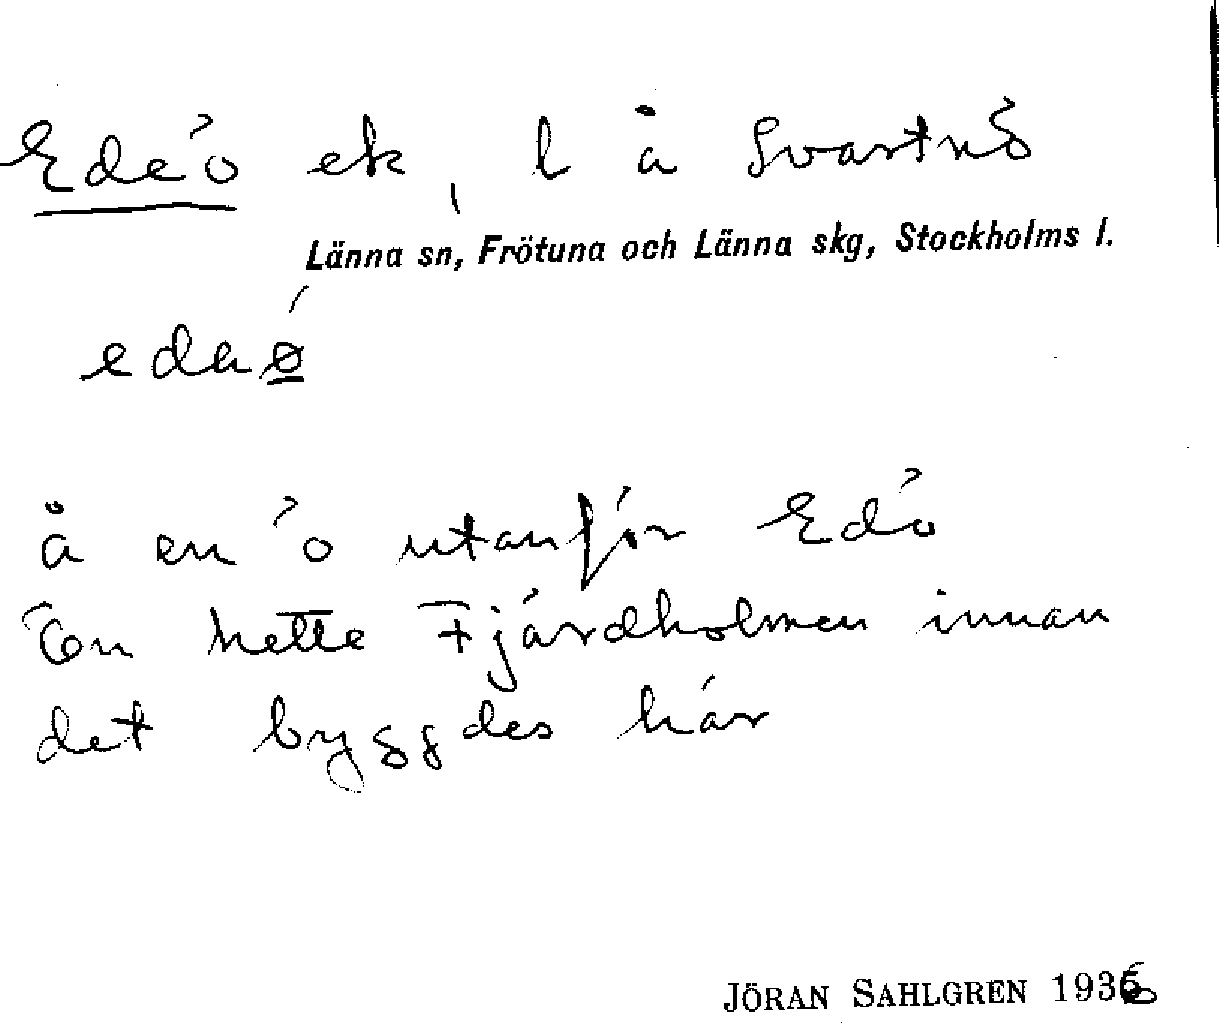 Edeö ek, l å Svartnö
Länna sn, Frötuna och Länna skg, Stockholms l.
edaø
å en ö utanför Edö
Ön hette Fjärdholmen innan
det byggdes här
JÖRAN SAHLGREN 1936